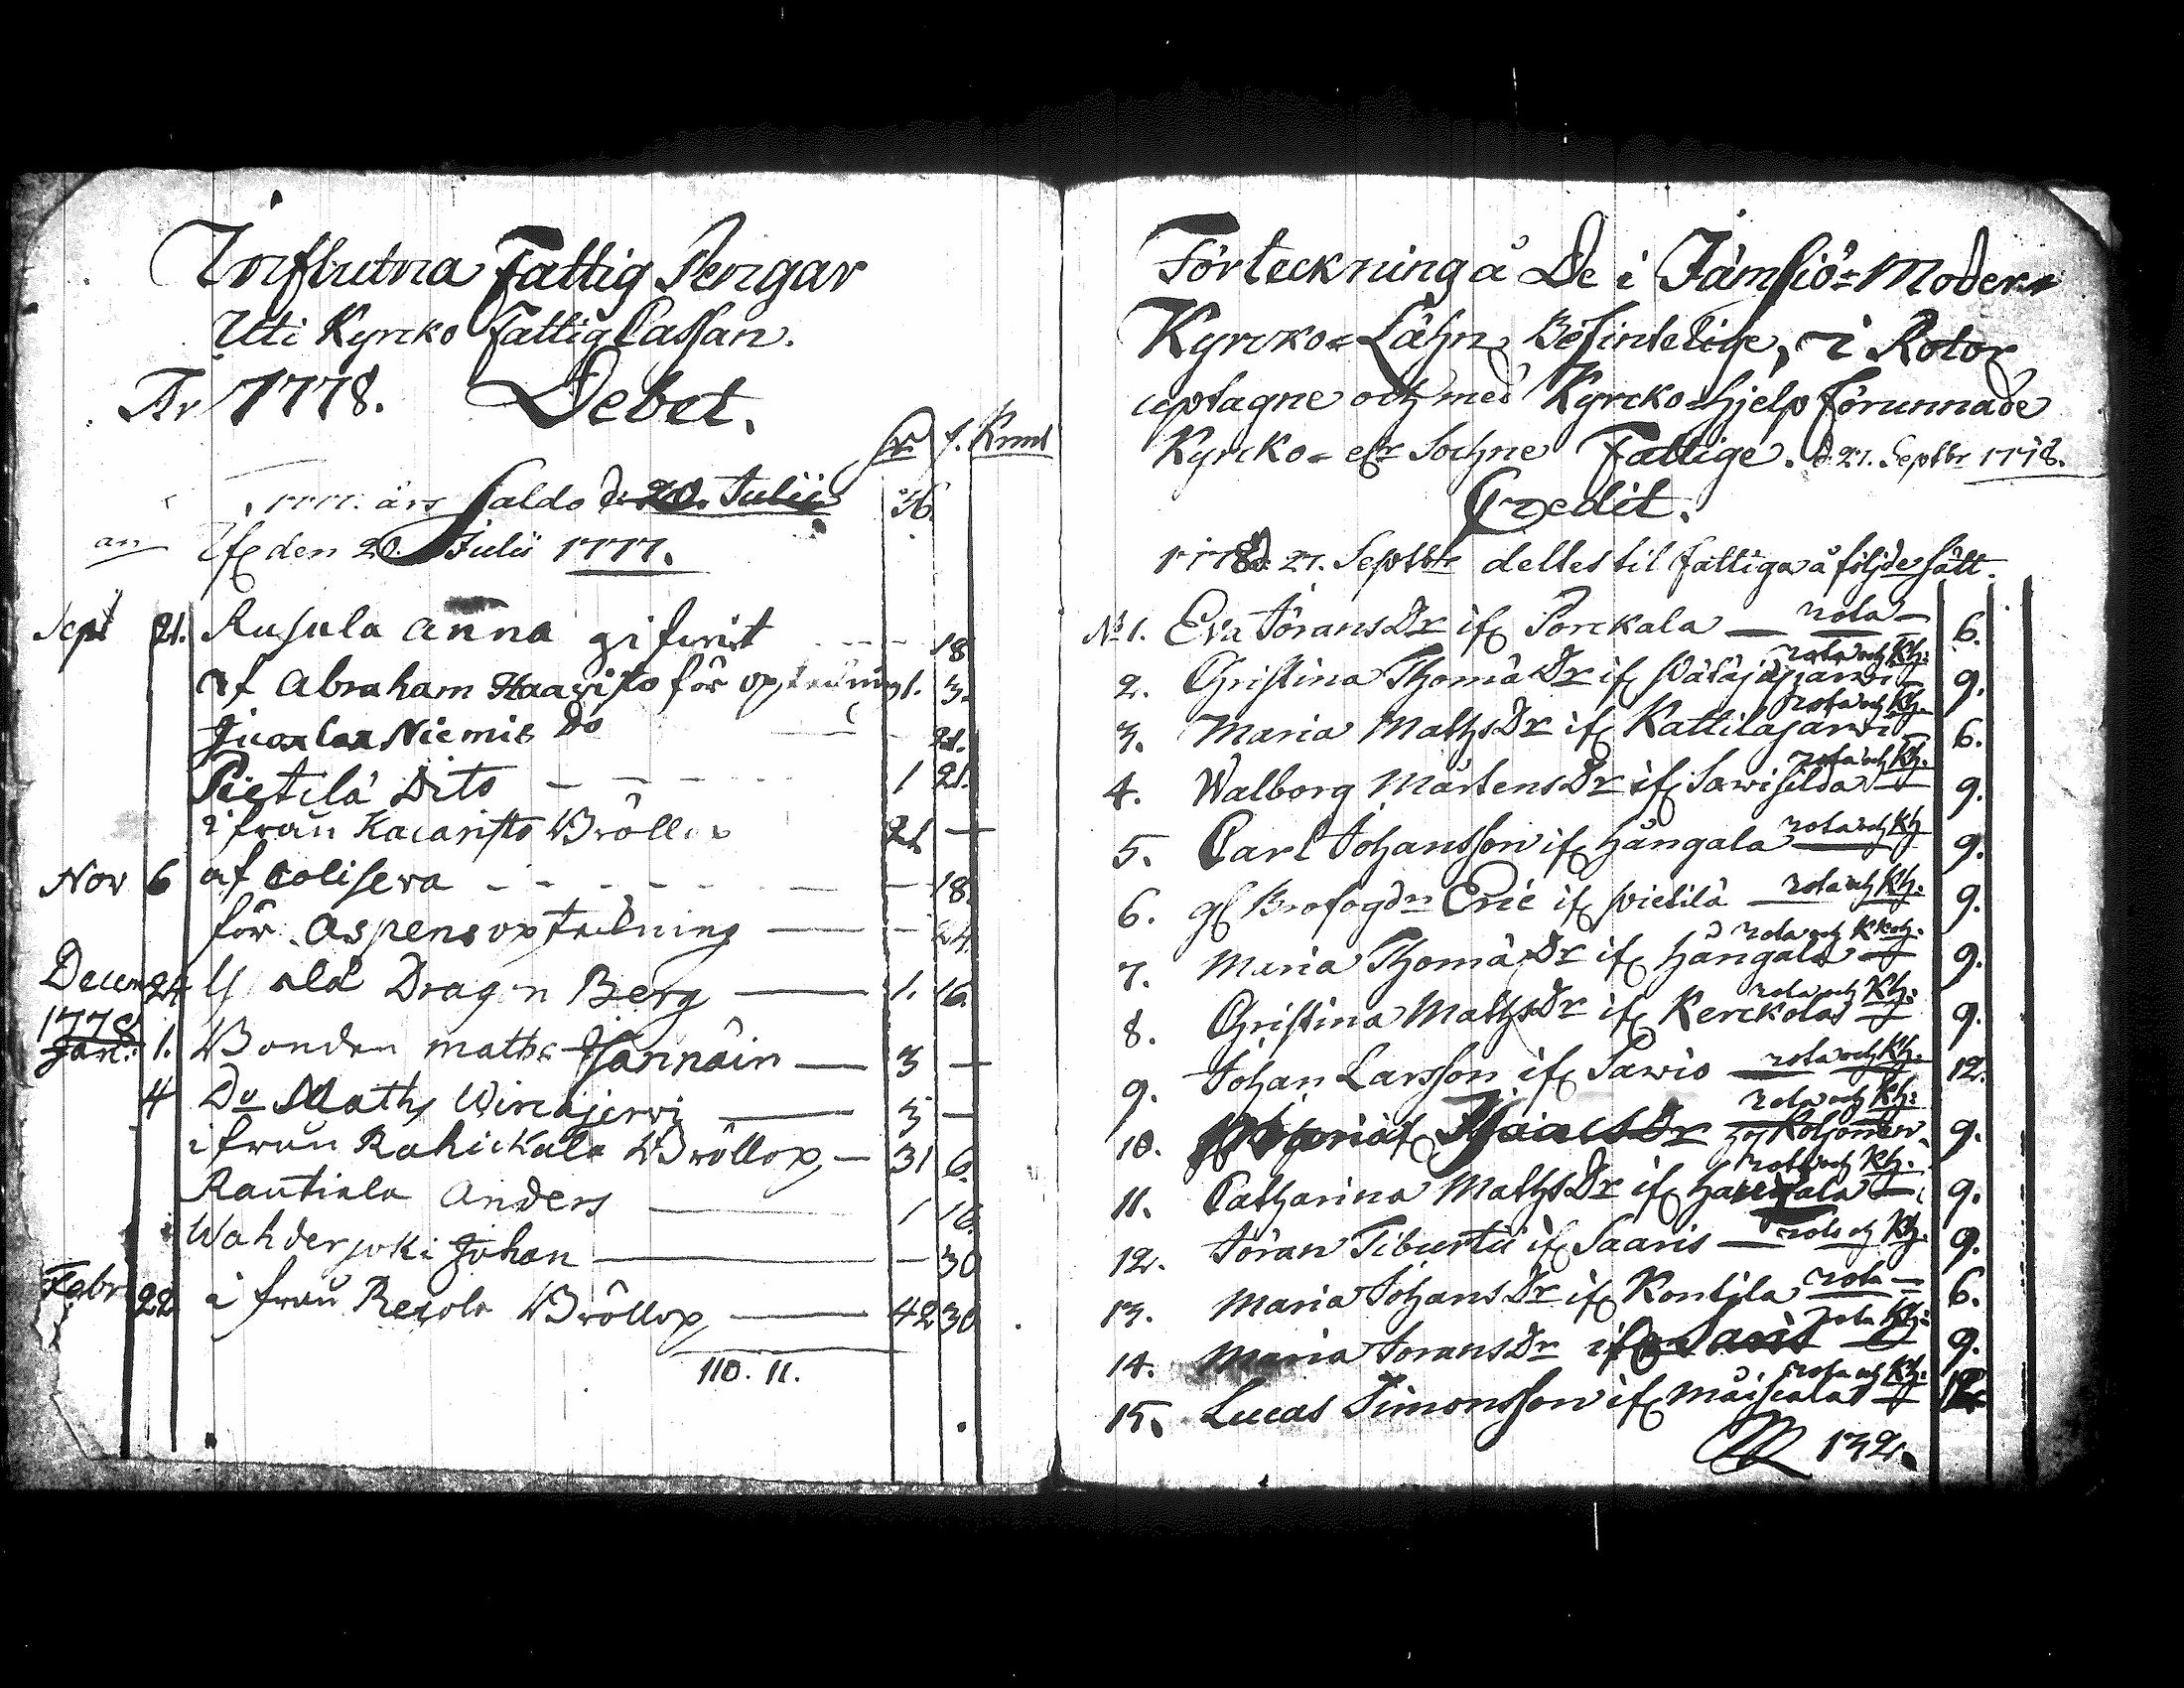 Influtna Fattig Pengar
Uti Kyrcko Fattig Cassan.
År 1778. Debet.
f. Runst
1777. års Saldo d. 20. Julii 36.
den 20. Julii 1777.
Sept 21. Rusula Anna gifwit - - - 18
af Abraham Haavisto för 1. 3.
Niemis Do - 21.
Pietilä Dito - - - - 1 21.
ifrån Bröllop 21 -
Nov 6 af - - - - - - 18.
för Aspens optedning - - 24.
Decem 24 Dragon Berg - 1. 16.
1778
Jan: 1. Bonden Maths - 3 -
4 Do Maths - 3 -
ifrån Bröllop - 31 6.
Rautiala Anders - 1 16.
Johan - - 30
Febr 22 ifrån Bröllop - 42 30
110. 11.
Förteckning å De i Jämsiö-Moder
Kyrcko-Lähn Befintelige, i Rotor
uptagne och med Kyrcko-hjelp förunnade
Kyrcko- elr Sochne Fattige. d. 27. Septbr 1778.
Credit.
1778 d. 27. Septbr deltes til fattiga å följde sätt.
No 1. Eva JöransDr if Porckala - rota - 6.
2. Christina ThomäDr if - rota och Kh: 9.
3. Maria MathsDr if Kattilajarwi - rota och Kh. 6.
4. Walborg MårtensDr if Sawisilda - rota och Kh. 9.
5. Carl Johansson if Hångala - rota och Kh 9.
6. gl Brofogdn Eric if Pietilä - rota och Kh: 9.
7. Maria ThomäDr if Hångala - rota och Kh. 9.
8. Christina MathsDr if Kerckola - rota och Kh: 9.
9. Johan Larsson if Sawio - rota och Kh. 12.
10. rota och Kh: 9.
11. Catharina MathsDr if - rota och Kh. 9.
12. Jöran Tiburtii if Saaris - rota och Kh. 9.
13. Maria JohansDr if Kontila - rota - 6.
14. Maria JöransDr if - rota Kh: 9.
15. Lucas Simonsson if - rota och Kh: 12
132.